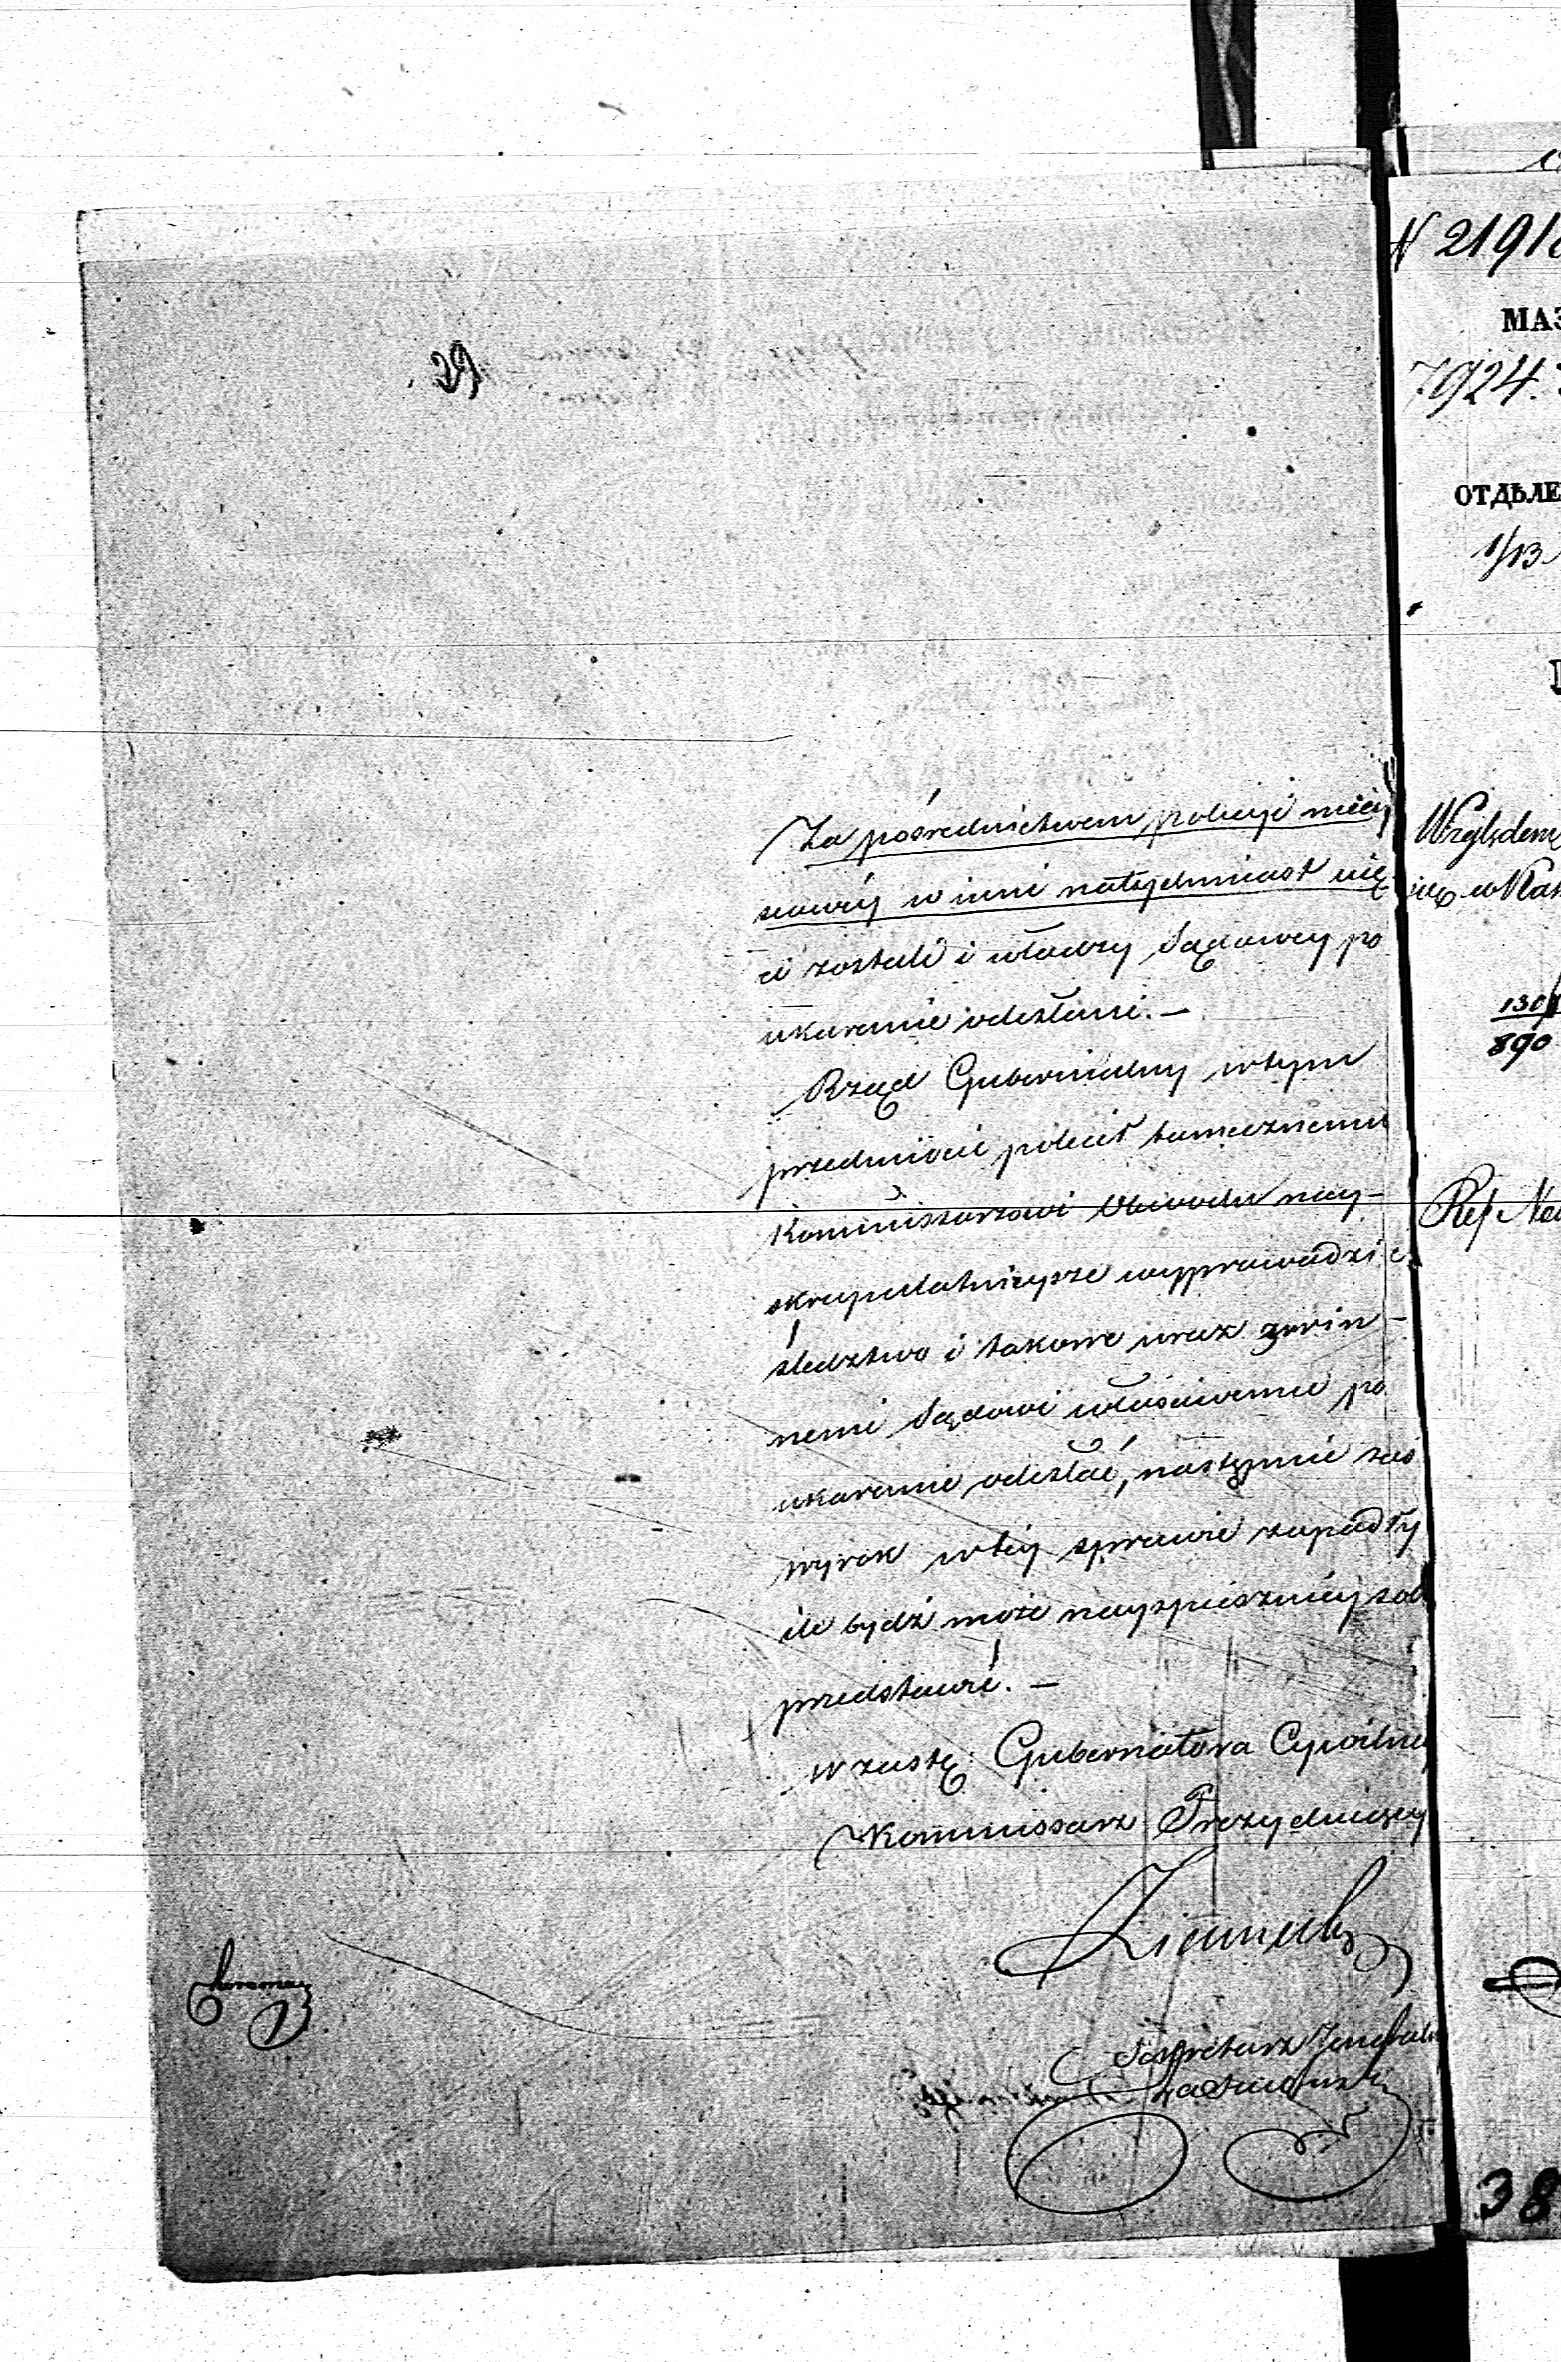 Za pośrednictwem policyi miey
scowéy winni natychmiast uię
ci zostali i władzy Sądowey po
ukaranie odesłani. —
Rząd Gubernialny w tym
przedmiocie polecił tamecznemu
Kommissarzowi Obwodu nay-
skrupulatnieysze wyprowadzić
śledztwo i takowe wraz z win-
nemi Sądowi właściwemu po
ukaranie odesłać, następnie zaś
wyrok w tey sprawie zapadły
ile bydź może nayspieszniéy sob
przedstawić. —
w zastę: Gubernatora Cywilne
Kommissarz Prezyduiący
Sekretarz Jeneraln
N 2191
МАЗ
7924.
ОТДѢЛЕ
1/13
Względem
130
890
Ref. Na
38